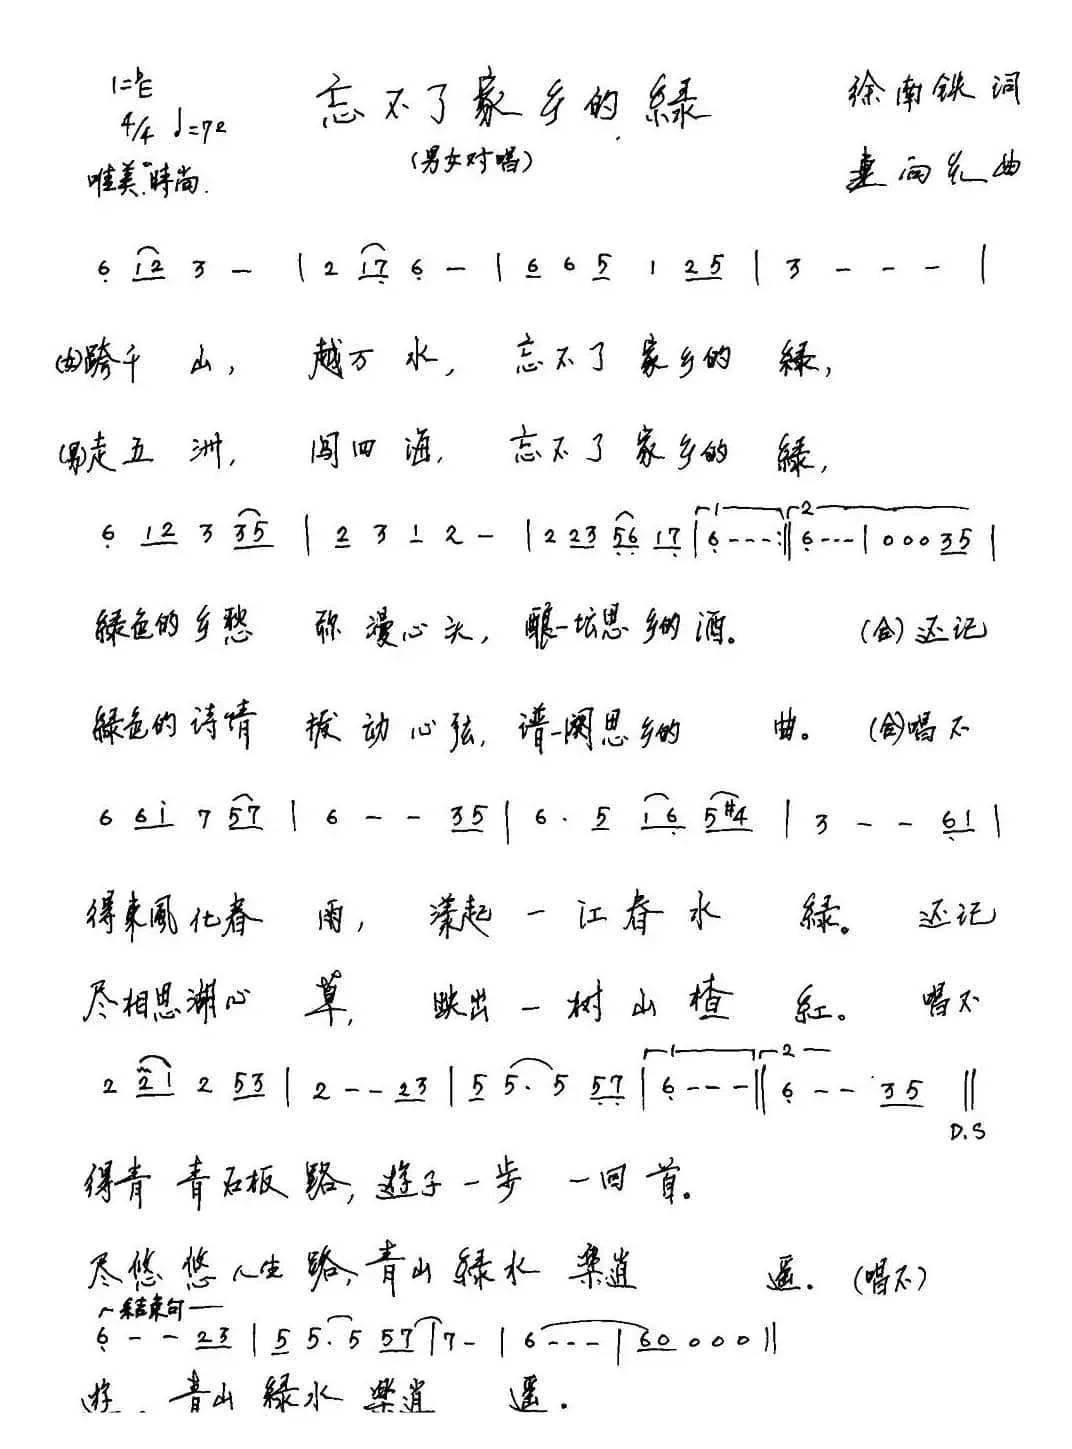 1=♭E
忘不了家乡的緑
徐南铁 词
4/4 ♩=72
(男女对唱)
唯美.時尚.
曲
6 12 3 - | 2 17 6 - | 6 6 5 1 25 | 3 - - - |
(女)跨千 山, 越万 水, 忘不了 家乡的 緑,
(男)走五 洲, 闯四 海, 忘不了 家乡的 緑,
6 12 3 35 | 2 3 1 2 - | 2 23 56 17 | 1 6 - - - :|| 2 6 - - - | 0 0 0 35 |
緑色的乡愁 弥漫心头, 酿一坛思乡的酒。 (合)还记
緑色的诗情 拨动心弦, 谱一阕思乡的 曲。 (合)唱不
6 6i 7 57 | 6 - - 35 | 6. 5 16 5#4 | 3 - - 61 |
得東風化春 雨, 漾起 一江春水 緑。 还记
尽相思湖心 草, 映出 一树山楂 紅。 唱不
2 21 2 53 | 2 - - 23 | 5 5. 5 57 | 1 6 - - - || 2 6 - - 35 ||
D.S
得青青石板 路, 遊子一步 一回首。
尽悠悠人生 路, 青山緑水 樂逍 遥. (唱不)
结束句
6 - - 23 | 5 5. 5 57 | 7 - | 6 - - - | 60 0 0 0 ||
遊. 青山 緑水 樂逍 遥.